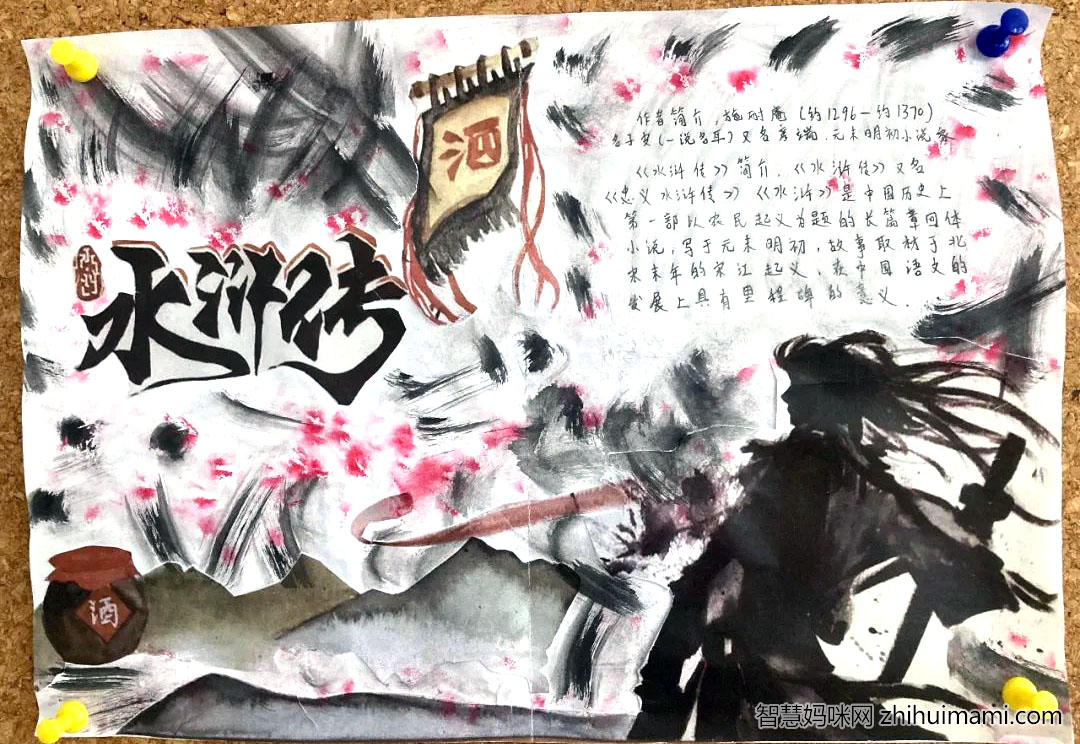 酒
水浒
水浒传
作者简介,施耐庵(约1296—约1370)
名子安(一说名耳)又名肇瑞,元末明初小说家
《水浒传》简介,《水浒传》又名
《忠义水浒传》《水浒》是中国历史上
第一部以农民起义为题的长篇章回体
小说,写于元末明初,故事取材于北
宋末年的宋江起义,在中国语文的
发展上具有里程碑的意义.
酒
智慧妈咪网 zhihuimami.com